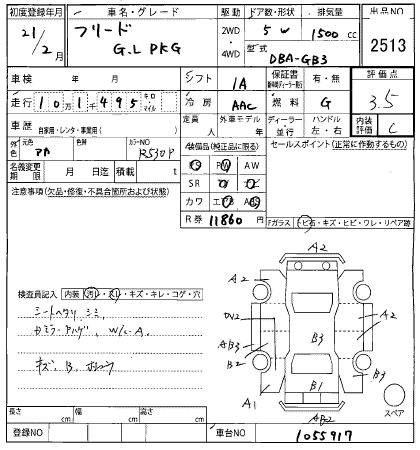 初度登録年月 車名・グレード 駆動 ドア数・形状 排気量 出品NO
21/2月 フリード 2WD 5W 1500cc 2513
G.L PKG ・4WD 型式 DBA-GB3
車検 年 月 シフト IA 保証書 有・無 評価点
走行 101495 キロ・マイル 冷房 AAC 燃料 G 3.5
車歴 自家用・レンタ・事業用( ) 定員 人 外車モデル 年 ディーラー・並行 ハンドル 左・右 内装評価 C
外色 元色 色替 カラーNO R530P 装備品(純正品に限る) セールスポイント(正常に作動するもの)
名義変更期限 月 日迄 積載量 t PS PW AW
注意事項(欠品・修復・不具合箇所および状態) SR
カワ エアB
R券 11860円 Fガラス トビ石・キズ・ヒビ・ワレ・リペア跡
A2
A2
A2
B3
AB3
B2
B3
B1
A1
スペア
検査員記入 内装 汚レ・スレ・キズ・キレ・コゲ・穴
シートヘタリ シミ
W/C-A
キズ B
長さ cm 幅 cm 高さ cm
登録NO 車台NO 1055917